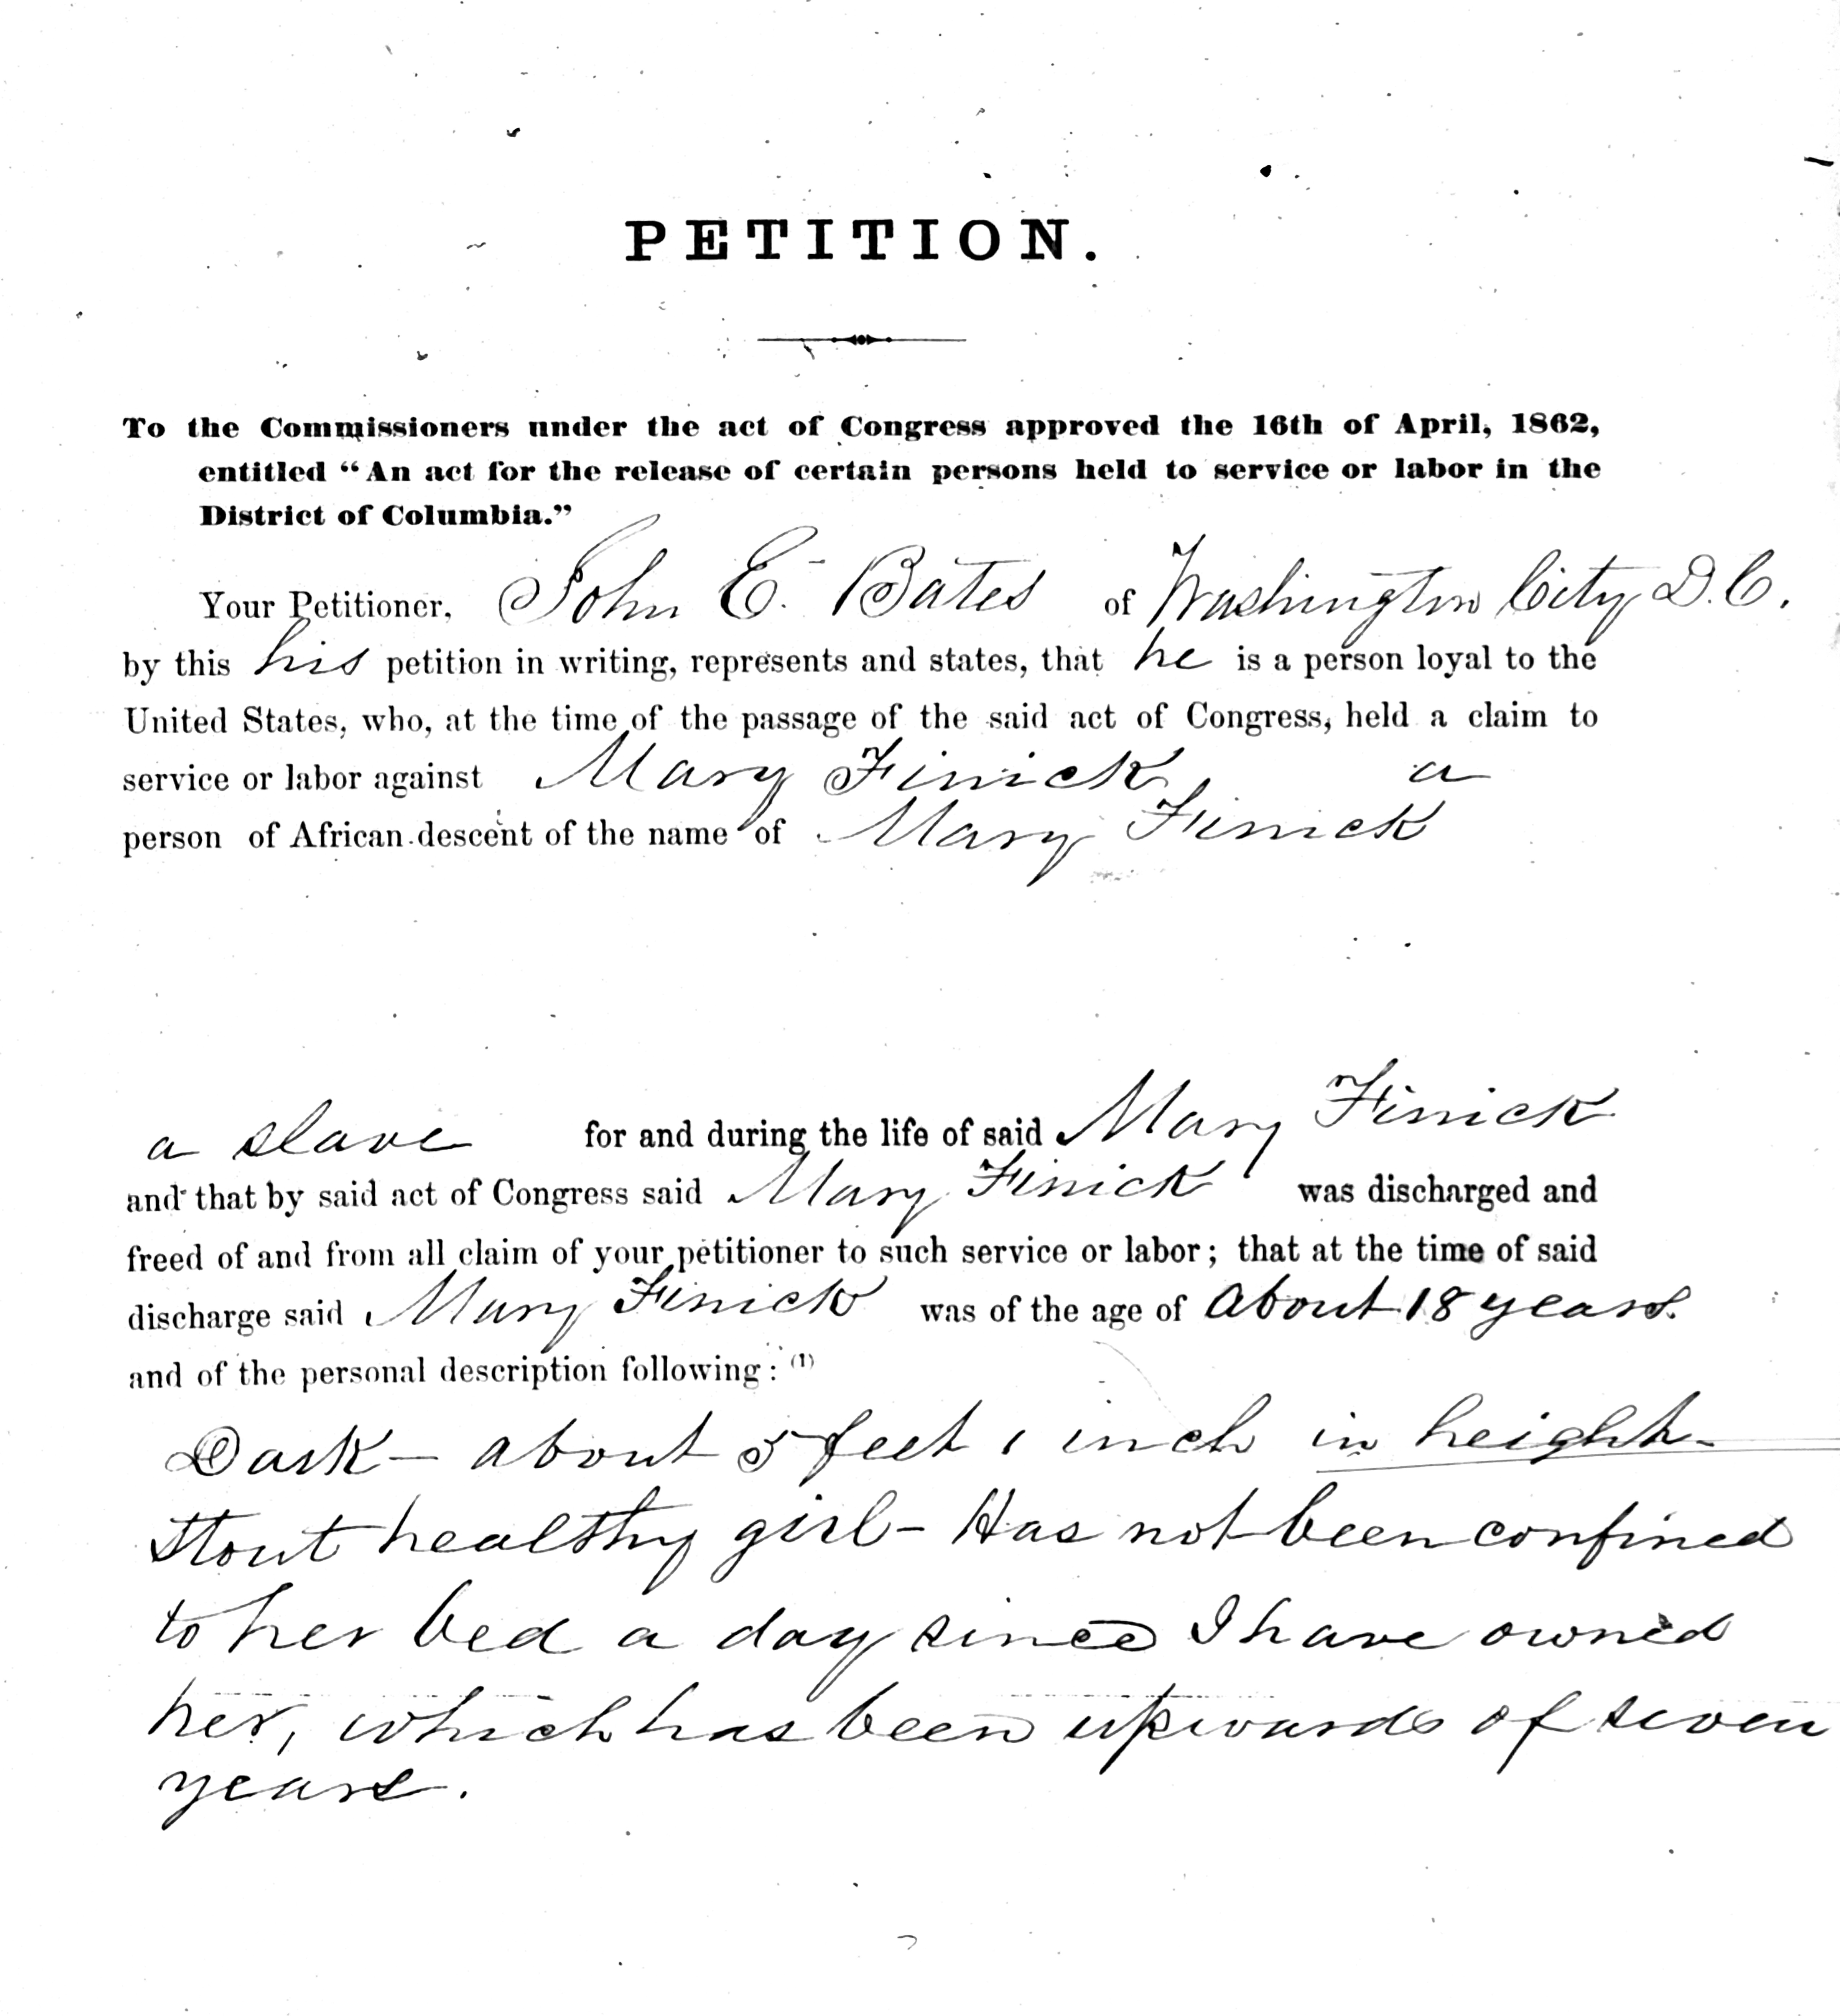 PETITION.
To the Commissioners under the act of Congress approved the 16th of April, 1862,
entitled "An act for the release of certain persons held to service or labor in the
District of Columbia."
Your Petitioner, John E. Bates of Washington City D.C.
by this his petition in writing, represents and states, that he is a person loyal to the
United States, who, at the time of the passage of the said act of Congress, held a claim to
service or labor against Mary Finick, a
person of African descent of the name of Mary Finick
a slave for and during the life of said Mary Finick
and that by said act of Congress said Mary Finick was discharged and
freed of and from all claim of your petitioner to such service or labor; that at the time of said
discharge said Mary Finick was of the age of About 18 years.
and of the personal description following: (1)
Dark – about 5 feet 1 inch in height –
Stout healthy girl – Has not been confined
to her bed a day since I have owned
her, which has been upwards of seven
years.